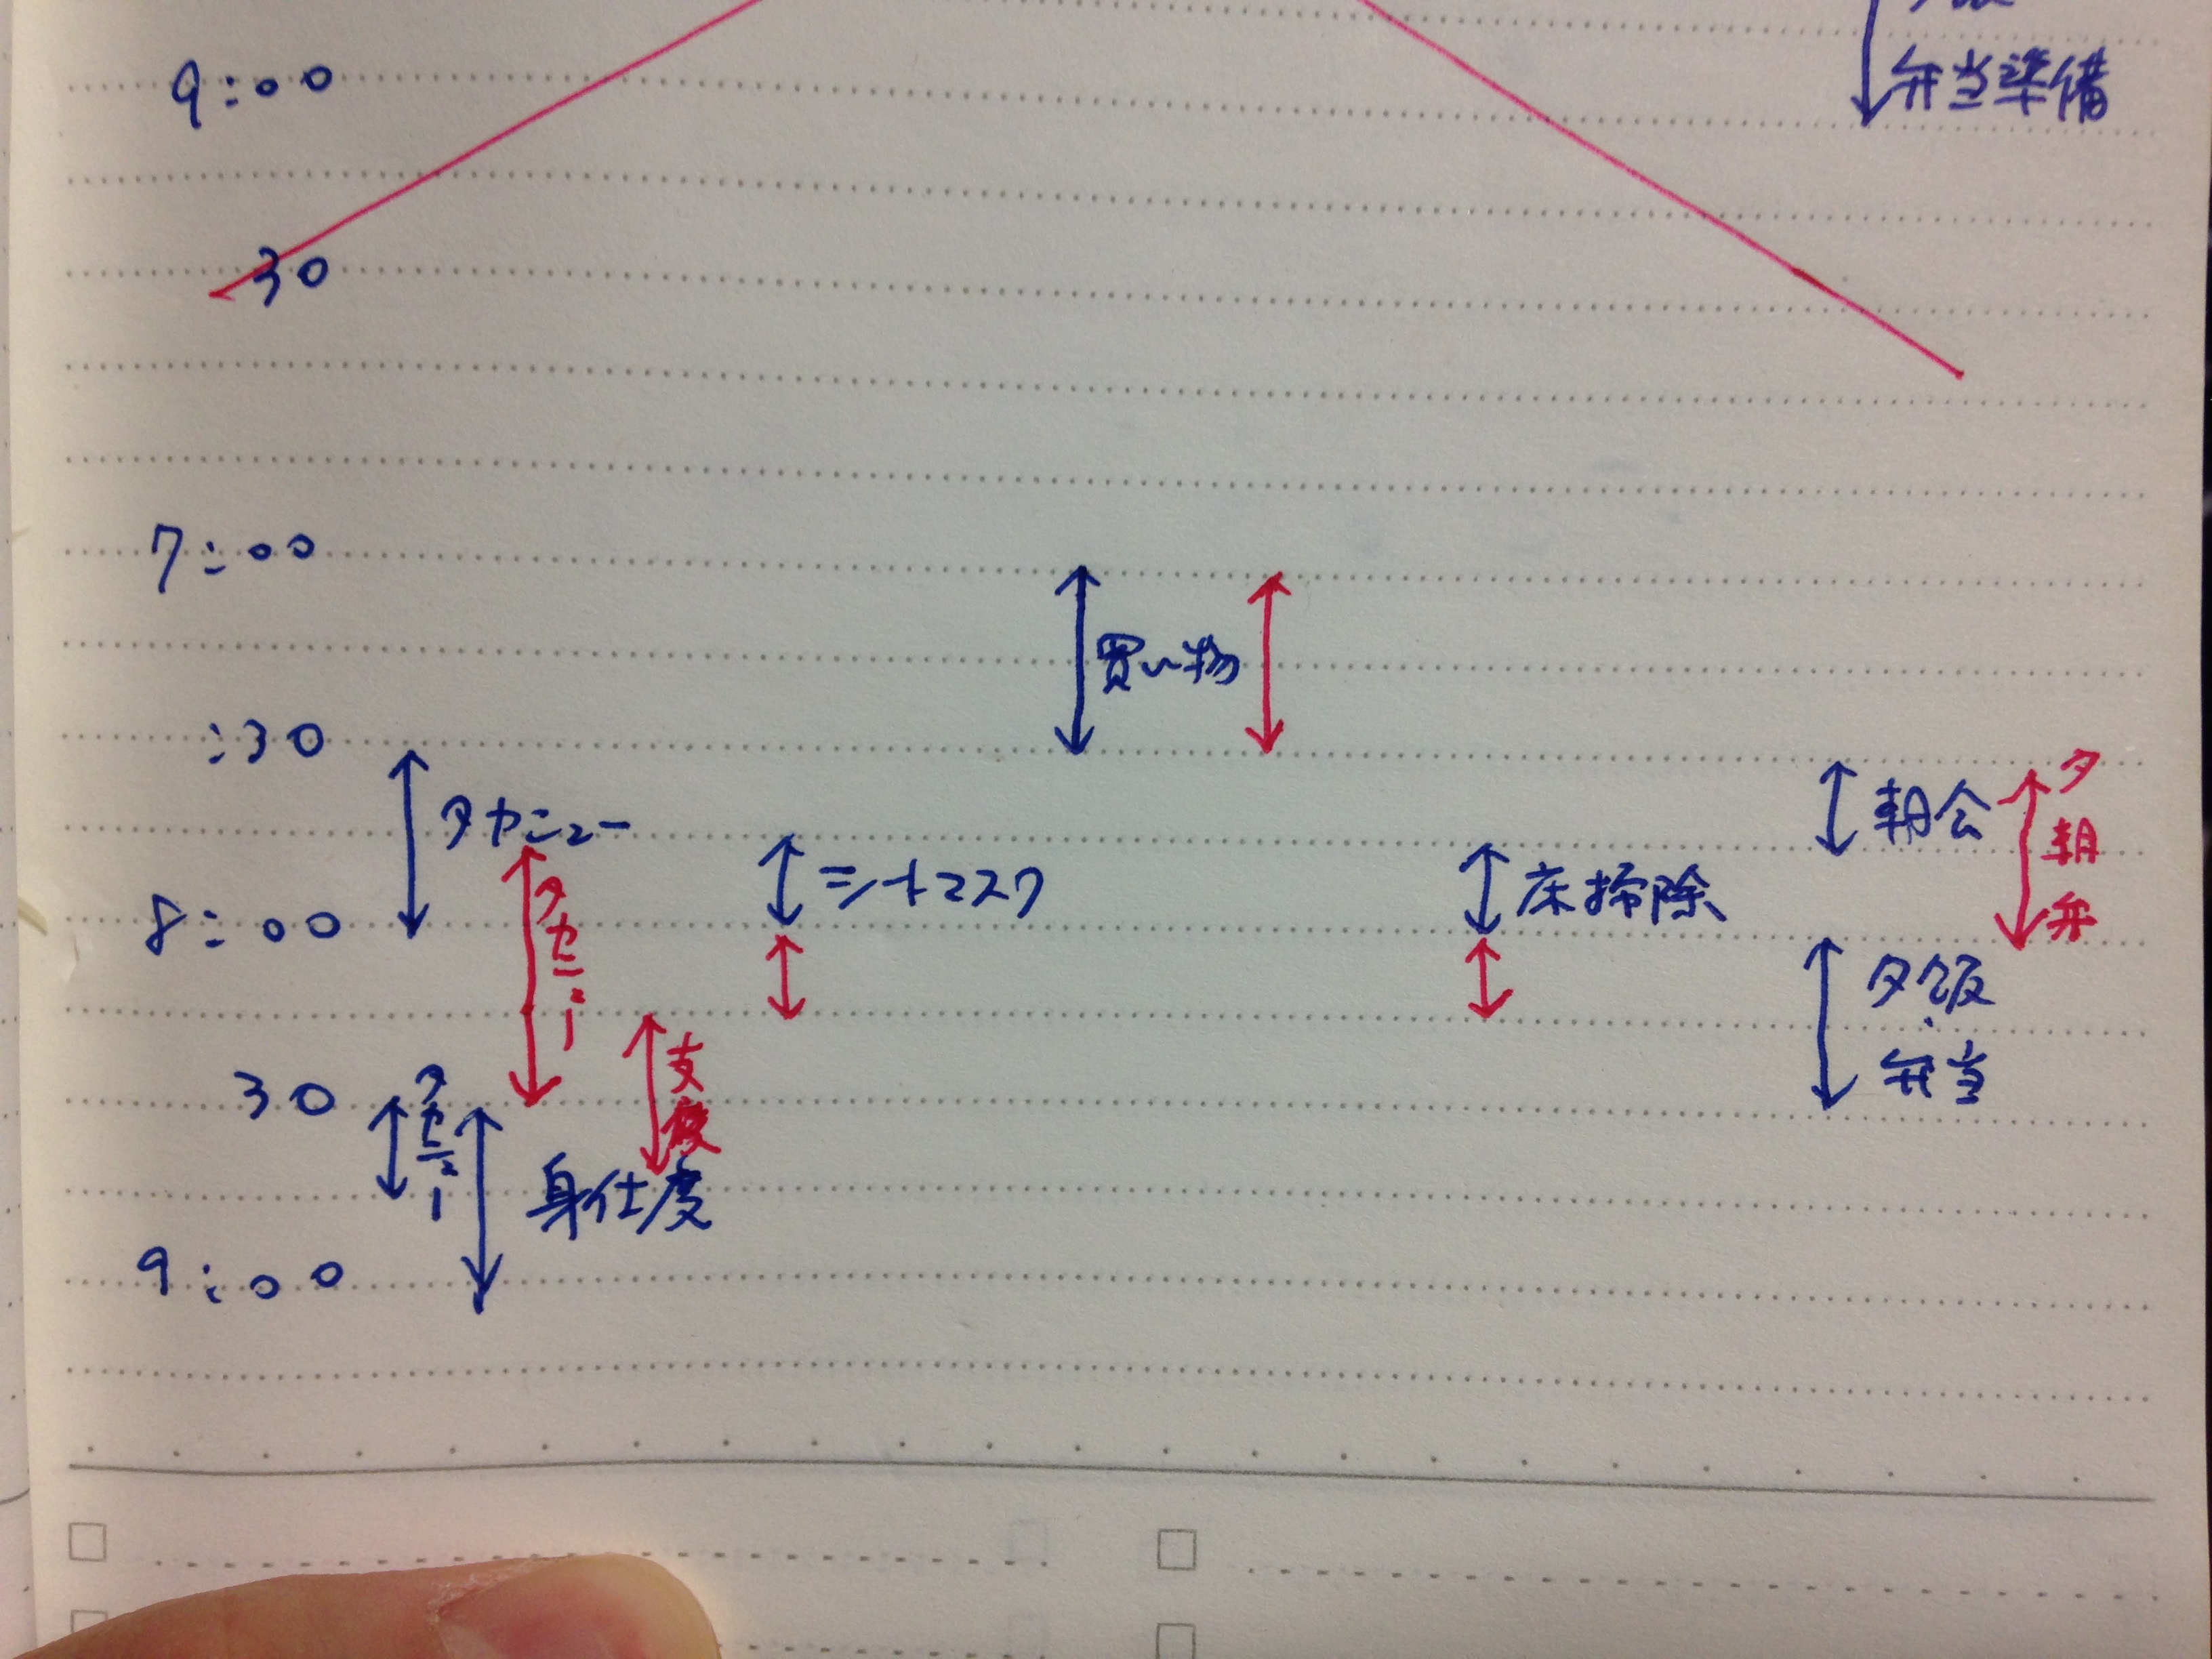 弁当準備
9:00
30
7:00
買い物
:30
タカニュー
タカニュー
シートマスク
床掃除
朝会
夕
朝
弁
8:00
夕飯
弁当
支度
30
タカニュー
身仕度
9:00